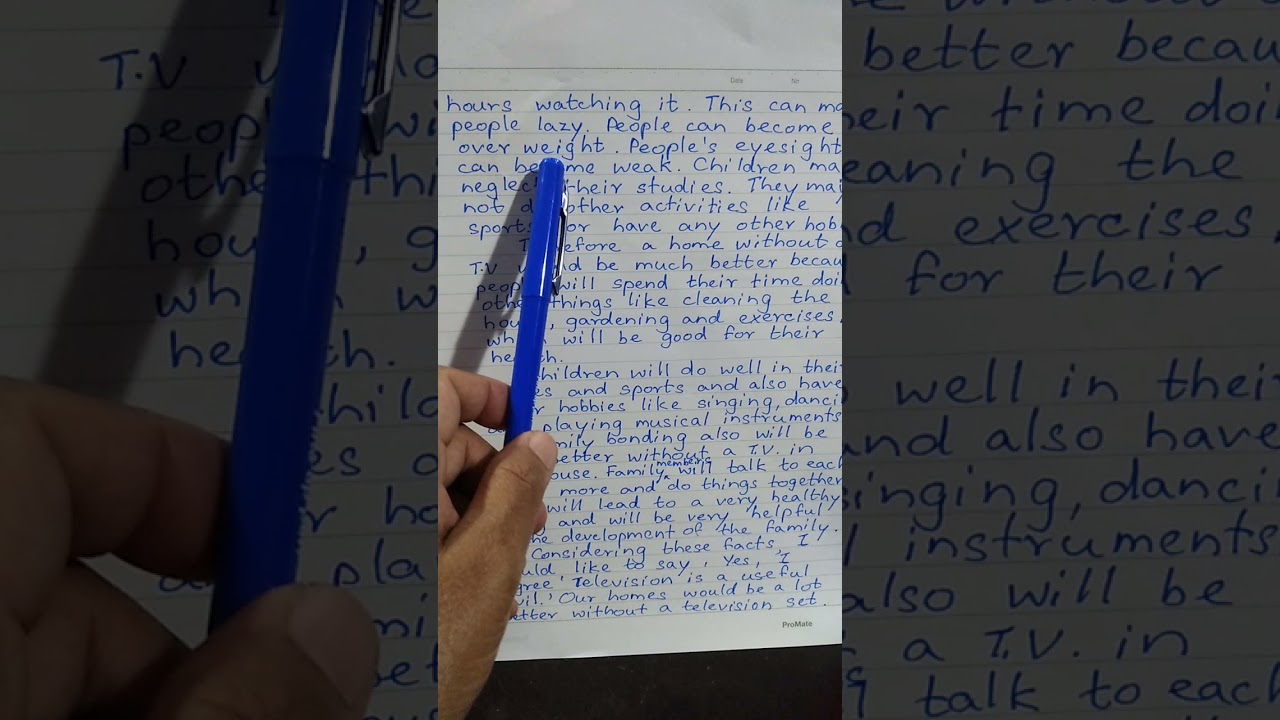 Date No
hours watching it. This can ma
people lazy. People can become
over weight. People's eyesight
can become weak. Children ma
neglect their studies. They may
not do other activities like
sports or have any other hob
Therefore a home without a
T.V would be much better becau
people will spend their time doi
other things like cleaning the
house, gardening and exercises,
which will be good for their
health.
Children will do well in their
es and sports and also have
hobbies like singing, danci
playing musical instruments
mily bonding also will be
etter without a T.V. in
ouse. Family members will talk to each
more and do things together
will lead to a very healthy
and will be very helpful
he development of the family.
Considering these facts, I
uld like to say, 'Yes, I
gree' Television is a useful
vil.' Our homes would be a lot
etter without a television set.
ProMate